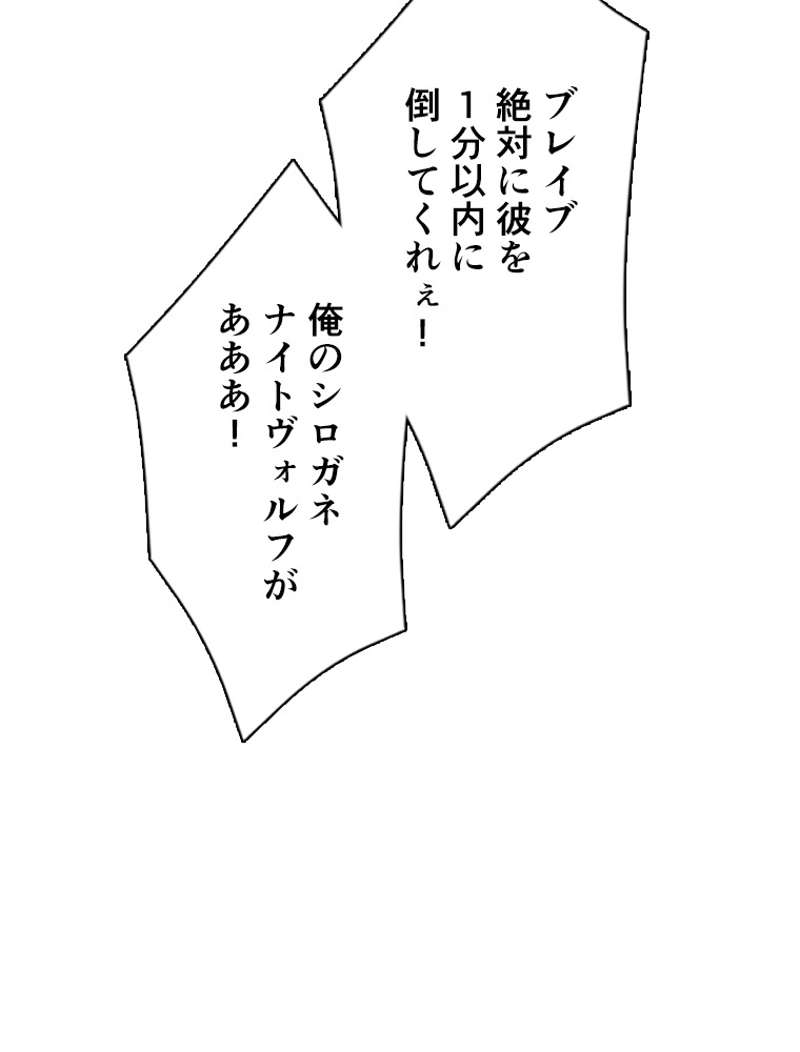 ブレイブ
絶対に彼を
１分以内に
倒してくれぇ！
俺のシロガネ
ナイトヴォルフが
あああ！